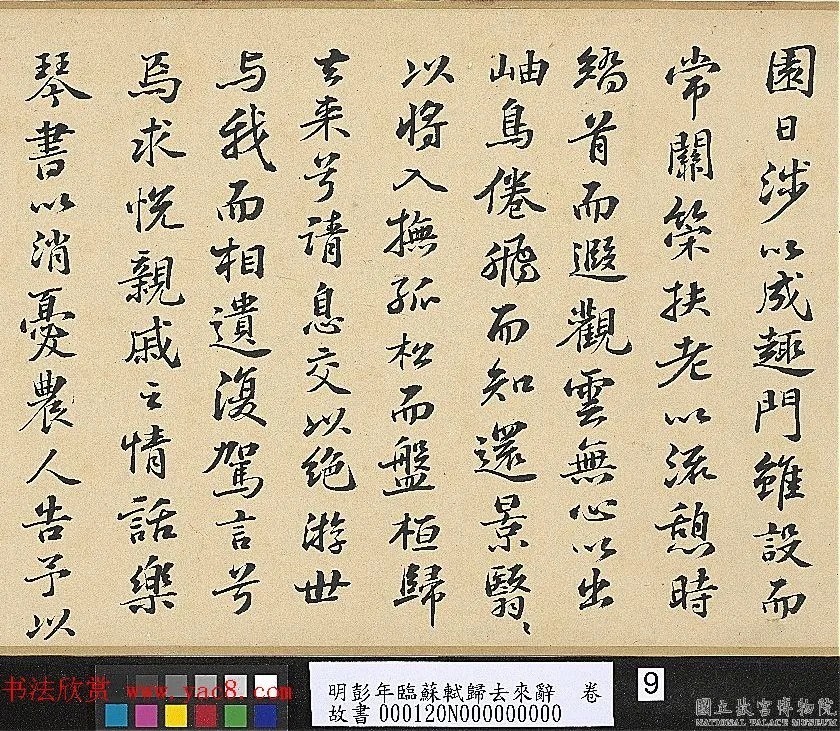 園日涉以成趣門雖設而
常關策扶老以流憩時
矯首而遐觀雲無心以出
岫鳥倦飛而知還景翳〻
以將入撫孤松而盤桓歸
去来兮請息交以絶游世
与我而相遺復駕言兮
焉求悅親戚之情話樂
琴書以消憂農人告予以
明彭年臨蘇軾歸去來辭 卷
故書 000120N000000000
9
书法欣赏 www.yac8.com
國立故宮博物院
NATIONAL PALACE MUSEUM